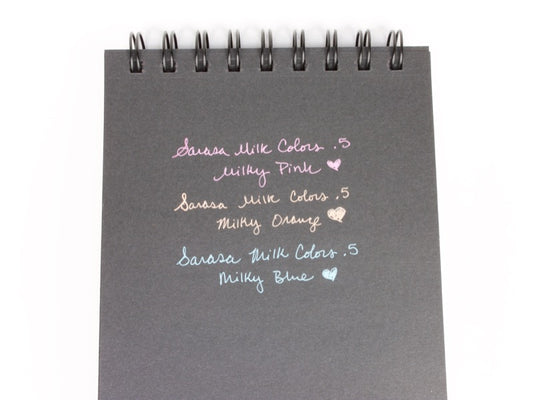 Sarasa Milk Colors .5
Milky Pink
Sarasa Milk Colors .5
Milky Orange
Sarasa Milk Colors .5
Milky Blue